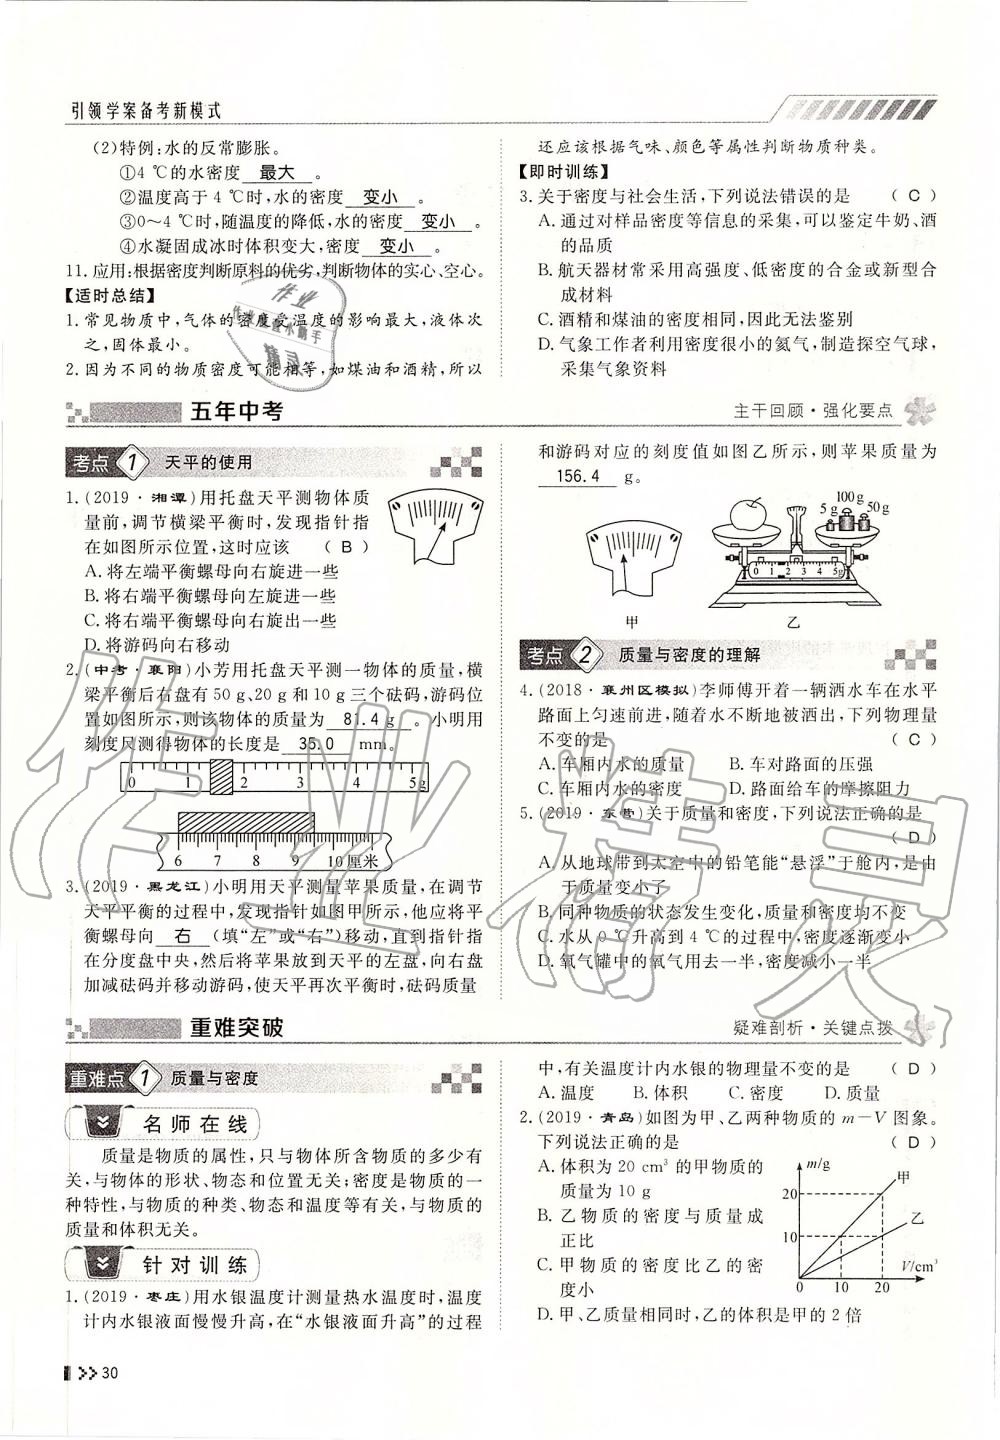 引领学案备考新模式
(2)特例:水的反常膨胀。
①4 ℃的水密度 最大 。
②温度高于 4 ℃时,水的密度 变小 。
③0～4 ℃时,随温度的降低,水的密度 变小 。
④水凝固成冰时体积变大,密度 变小 。
11. 应用:根据密度判断原料的优劣,判断物体的实心、空心。
【适时总结】
1. 常见物质中,气体的密度受温度的影响最大,液体次
之,固体最小。
2. 因为不同的物质密度可能相等,如煤油和酒精,所以
还应该根据气味、颜色等属性判断物质种类。
【即时训练】
3. 关于密度与社会生活,下列说法错误的是 ( C )
A. 通过对样品密度等信息的采集,可以鉴定牛奶、酒
的品质
B. 航天器材常采用高强度、低密度的合金或新型合
成材料
C. 酒精和煤油的密度相同,因此无法鉴别
D. 气象工作者利用密度很小的氦气,制造探空气球,
采集气象资料
五年中考
主干回顾·强化要点
考点 1 天平的使用
1. (2019·湘潭)用托盘天平测物体质
量前,调节横梁平衡时,发现指针指
在如图所示位置,这时应该 ( B )
A. 将左端平衡螺母向右旋进一些
B. 将右端平衡螺母向左旋进一些
C. 将右端平衡螺母向右旋出一些
D. 将游码向右移动
2. (中考·襄阳)小芳用托盘天平测一物体的质量,横
梁平衡后右盘有 50 g、20 g 和 10 g 三个砝码,游码位
置如图所示,则该物体的质量为 81.4 g 。小明用
刻度尺测得物体的长度是 35.0 mm。
0 1 2 3 4 5g
6 7 8 9 10 厘米
3. (2019·黑龙江)小明用天平测量苹果质量,在调节
天平平衡的过程中,发现指针如图甲所示,他应将平
衡螺母向 右 (填“左”或“右”)移动,直到指针指
在分度盘中央,然后将苹果放到天平的左盘,向右盘
加减砝码并移动游码,使天平再次平衡时,砝码质量
和游码对应的刻度值如图乙所示,则苹果质量为
156.4 g。
100g
5g 50g
0 1 2 3 4 5g
甲 乙
考点 2 质量与密度的理解
4. (2018·襄州区模拟)李师傅开着一辆洒水车在水平
路面上匀速前进,随着水不断地被洒出,下列物理量
不变的是 ( C )
A. 车厢内水的质量 B. 车对路面的压强
C. 车厢内水的密度 D. 路面给车的摩擦阻力
5. (2019·东营)关于质量和密度,下列说法正确的是
( D )
A. 从地球带到太空中的铅笔能“悬浮”于舱内,是由
于质量变小了
B. 同种物质的状态发生变化,质量和密度均不变
C. 水从 0 ℃升高到 4 ℃的过程中,密度逐渐变小
D. 氧气罐中的氧气用去一半,密度减小一半
重难突破
疑难剖析·关键点拨
重难点 1 质量与密度
名师在线
质量是物质的属性,只与物体所含物质的多少有
关,与物体的形状、物态和位置无关;密度是物质的一
种特性,与物质的种类、物态和温度等有关,与物质的
质量和体积无关。
针对训练
1. (2019·枣庄)用水银温度计测量热水温度时,温度
计内水银液面慢慢升高,在“水银液面升高”的过程
中,有关温度计内水银的物理量不变的是 ( D )
A. 温度 B. 体积 C. 密度 D. 质量
2. (2019·青岛)如图为甲、乙两种物质的 m—V 图象。
下列说法正确的是 ( D )
A. 体积为 20 cm³ 的甲物质的
质量为 10 g
B. 乙物质的密度与质量成
正比
C. 甲物质的密度比乙的密
度小
D. 甲、乙质量相同时,乙的体积是甲的 2 倍
m/g
甲
20
乙
10
0 10 20 V/cm³
30
作业精灵